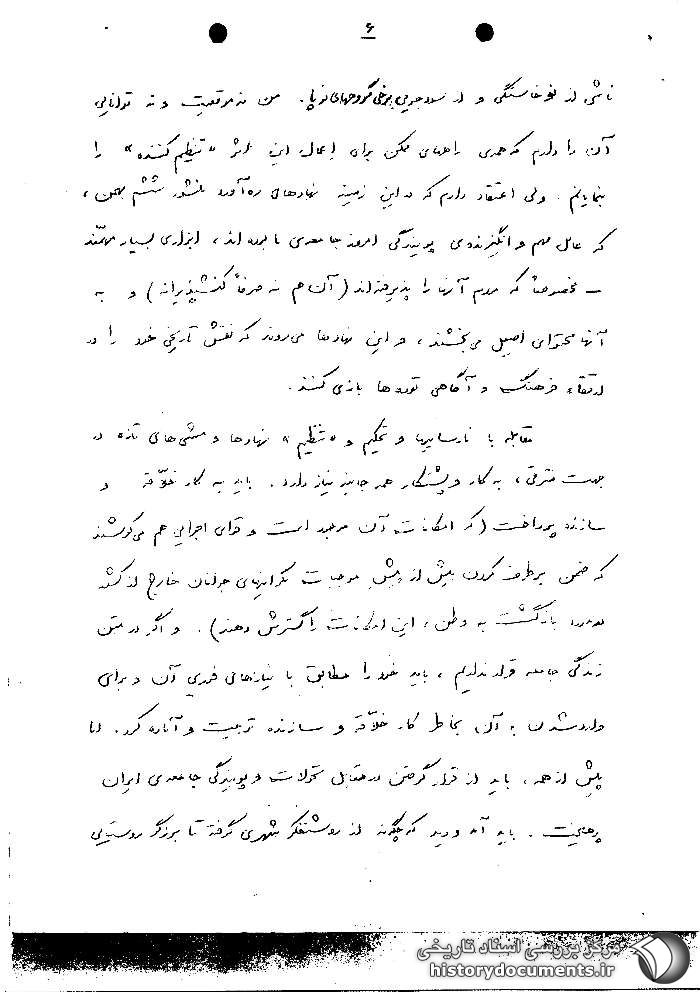 ۶
ناشی از نوخاستگی و از سودجویی برخی گروههای نوپا. من نه موقعیت و نه توانایی
آن را دارم که همهٔ راههای ممکن برای اعمال این اثر «تنظیم کننده» را
بنمایانم. ولی اعتقاد دارم که در این زمینه نهادهای ره‌آورد منشور ششم بهمن،
که عامل مهم و انگیزنده‌ی پویندگی امروز جامعه‌ی ما بوده اند، ابزاری بسیار مهمّند
– مخصوصاً که مردم آنها را پذیرفته‌اند (آن هم نه صرفاً کنش‌پذیرانه) و به
آنها محتوای اصیل می‌بخشند، و این نهادها می‌روند که نقش تاریخی خود را در
ارتقاء فرهنگ و آگاهی توده‌ها بازی کنند.
مقابله با نارساییها و تحکیم و «تنظیم» نهادها و مشی‌های تازه در
جهت مترقی، به کار و پشتکار همه جانبه نیاز دارد. باید به کار خلّاقه و
سازنده پرداخت (که امکانات آن موجود است و قوای اجرایی هم می‌کوشند
که ضمن برطرف کردن بیش از پیش موجبات نگرانیهای جوانان خارج از کشور
در مورد بازگشت به وطن، این امکانات را گسترش دهند). و اگر در متن
زندگی جامعه قرار نداریم، باید خود را مطابق با نیازهای فوری آن و برای
وارد شدن به آن بخاطر کار خلّاقه و سازنده تربیت و آماده کرد. اما
پیش از همه، باید از قرار گرفتن در مقابل تحولات و پویندگی جامعه‌ی ایران
پرهیخت. باید آمد و دید که چگونه از روشنفکر شهری گرفته تا برزگر روستایی
مرکز بررسی اسناد تاریخی
historydocuments.ir